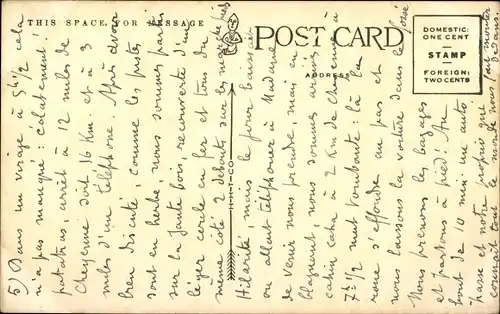 THIS SPACE FOR MESSAGE
POST CARD
ADDRESS
DOMESTIC:
ONE CENT
STAMP
FOREIGN:
TWO CENTS
H.H.T.CO.
5) Dans un virage à 9h 1/2 cela
n'a pas manqué : éclatement !
patatras, arrêt à 12 miles de
Cheyenne soit 16 Km. et à 3
miles d'un téléphone. Après avoir
bien discuté, comme les pistes
sont en herbe, nous sommes partis
sur la Jante bois recouverte d'un
léger cercle en fer et tous du
même côté 2 debouts sur les marche pieds
Hilarité mais le jour baissait
on allait téléphoner à Madame
de venir nous prendre, mais en
blaguant, nous sommes arrivés
cahin caha à 2 Km de Cheyenne à
7h 1/2 nuit tombante : là la
roue s'effondre un pas et
nous laissons la voiture dans le fossé
Nous prenons les bagages
et partons à pied ! Au
bout de 10 min. une auto
passe et notre
tout le nous fait monter
dedans